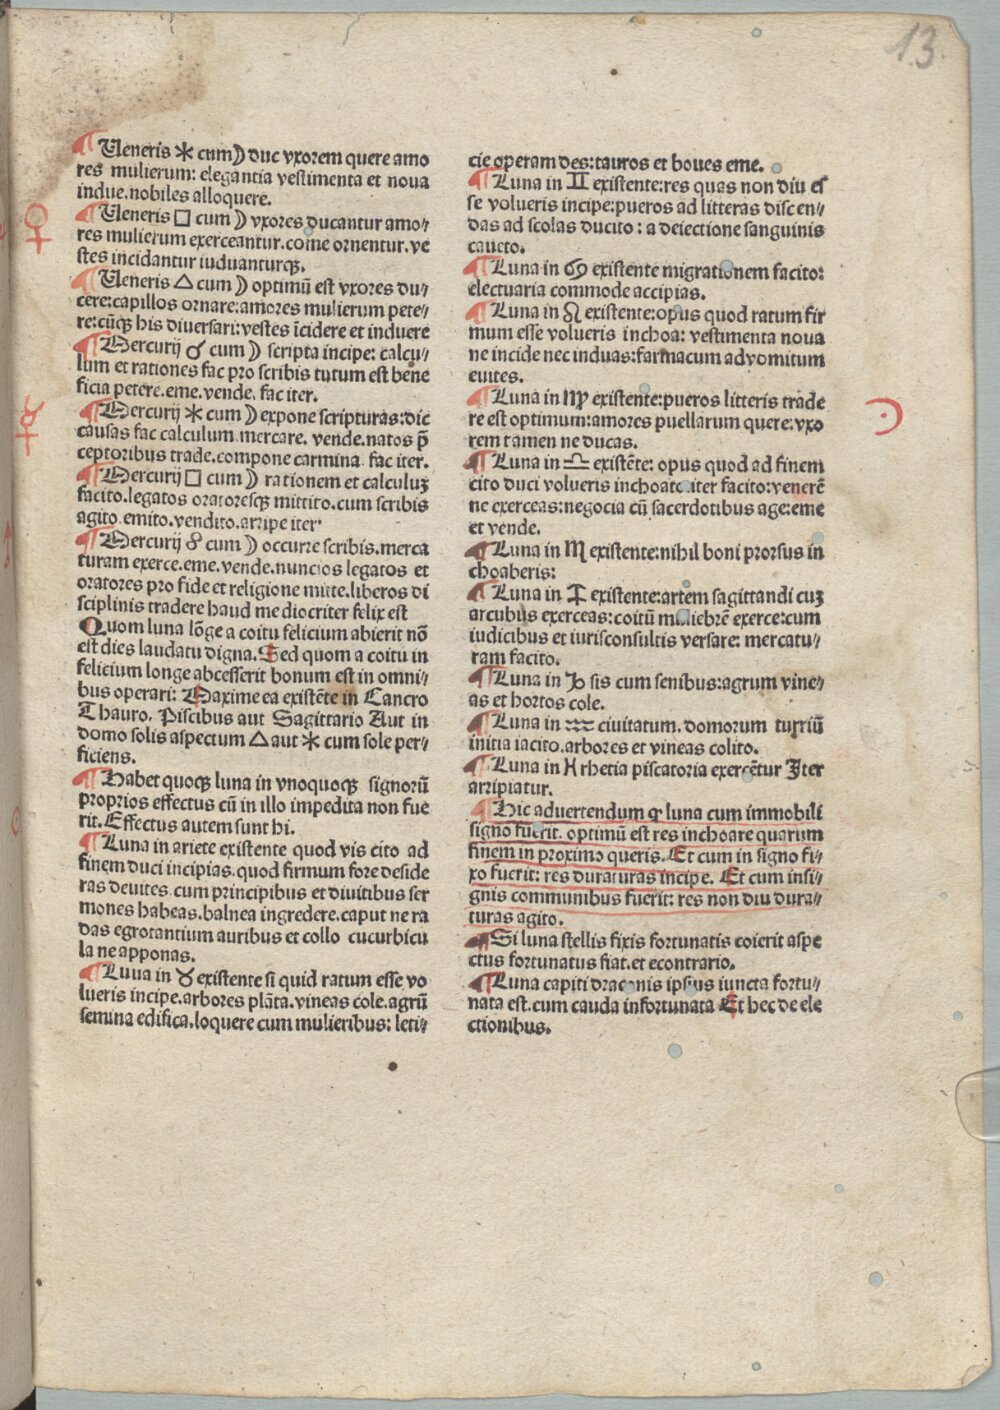 13.
¶ Ueneris ⚹ cum ☽ duc vxorem quere amo
res mulierum: elegantia vestimenta et noua
indue.nobiles alloquere.
¶ Ueneris □ cum ☽ vxores ducantur amo⸗
res mulierum exerceantur.come ornentur.ve
stes incidantur iuduanturqꝫ.
¶ Ueneris △ cum ☽ optimū est vxores du⸗
cere:capillos ornare:amores mulierum pete⸗
re:cūqꝫ his diuersari:vestes īcidere et induere
¶ Mercurij ☌ cum ☽ scripta incipe: calcu⸗
lum et rationes fac pro scribis tutum est bene
ficia petere.eme.vende. fac iter.
¶ Mercurij ⚹ cum ☽ expone scripturas:dic
causas fac calculum mercare. vende.natos p̄
ceptoribus trade.compone carmina. fac iter.
¶ Mercurij □ cum ☽ rationem et calculuꝫ
facito.legatos oratoresqꝫ mittito.cum scribis
agito.emito.vendito.arripe iter.
¶ Mercurij ☍ cum ☽ occurre scribis.merca
turam exerce.eme.vende.nuncios legatos et
oratores pro fide et religione mitte.liberos di
sciplinis tradere haud mediocriter felix est
Quom luna lōge a coitu felicium abierit nō
est dies laudatu digna. Sed quom a coitu in
felicium longe abcesserit bonum est in omni⸗
bus operari: Maxime ea existēte in Cancro
Thauro. Piscibus aut Sagittario Aut in
domo solis aspectum △ aut ⚹ cum sole per⸗
ficiens.
¶ Habet quoqꝫ luna in vnoquoqꝫ signorū
proprios effectus cū in illo impedita non fue
rit. Effectus autem sunt hi.
¶ Luna in ariete existente quod vis cito ad
finem duci incipias.quod firmum fore deside
ras deuites.cum principibus et diuitibus ser
mones habeas.balnea ingredere.caput ne ra
das egrotantium auribus et collo cucurbicu
la ne apponas.
¶ Luna in ♉ existente si quid ratum esse vo
lueris incipe.arbores plāta.vineas cole.agrū
semina edifica.loquere cum mulieribus: leti⸗
cie operam des:tauros et boues eme.
¶ Luna in ♊ existente:res quas non diu es
se volueris incipe:pueros ad litteras discen⸗
das ad scolas ducito: a deiectione sanguinis
caueto.
¶ Luna in ♋ existente migrationem facito:
electuaria commode accipias.
¶ Luna in ♌ existente:opus quod ratum fir
mum esse volueris inchoa: vestimenta noua
ne incide nec induas:farmacum ad vomitum
euites.
¶ Luna in ♍ existente:pueros litteris trade
re est optimum:amores puellarum quere:vxo
rem tamen ne ducas.
¶ Luna in ♎ existēte: opus quod ad finem
cito duci volueris inchoato.iter facito:venerē
ne exerceas:negocia cū sacerdotibus age:eme
et vende.
¶ Luna in ♏ existente:nihil boni prorsus in
choaberis:
¶ Luna in ♐ existente:artem sagittandi cuꝫ
arcubus exerceas:coitū muliebrē exerce:cum
iudicibus et iurisconsultis versare: mercatu⸗
ram facito.
¶ Luna in ♑ sis cum senibus:agrum vine⸗
as et hortos cole.
¶ Luna in ♒ ciuitatum. domorum turriū
initia iacito.arbores et vineas colito.
¶ Luna in ♓ rhetia piscatoria exercētur Iter
arripiatur.
¶ Hic aduertendum ꝙ luna cum immobili
signo fuerit. optimū est res inchoare quarum
finem in proximo queris. Et cum in signo fi⸗
xo fuerit: res duraturas incipe. Et cum insi⸗
gnis communibus fuerit: res non diu dura⸗
turas agito.
¶ Si luna stellis fixis fortunatis coierit aspe
ctus fortunatus fiat.et econtrario.
¶ Luna capiti draconis ipsius iuncta fortu⸗
nata est.cum cauda infortunata Et hec de ele
ctionibus.